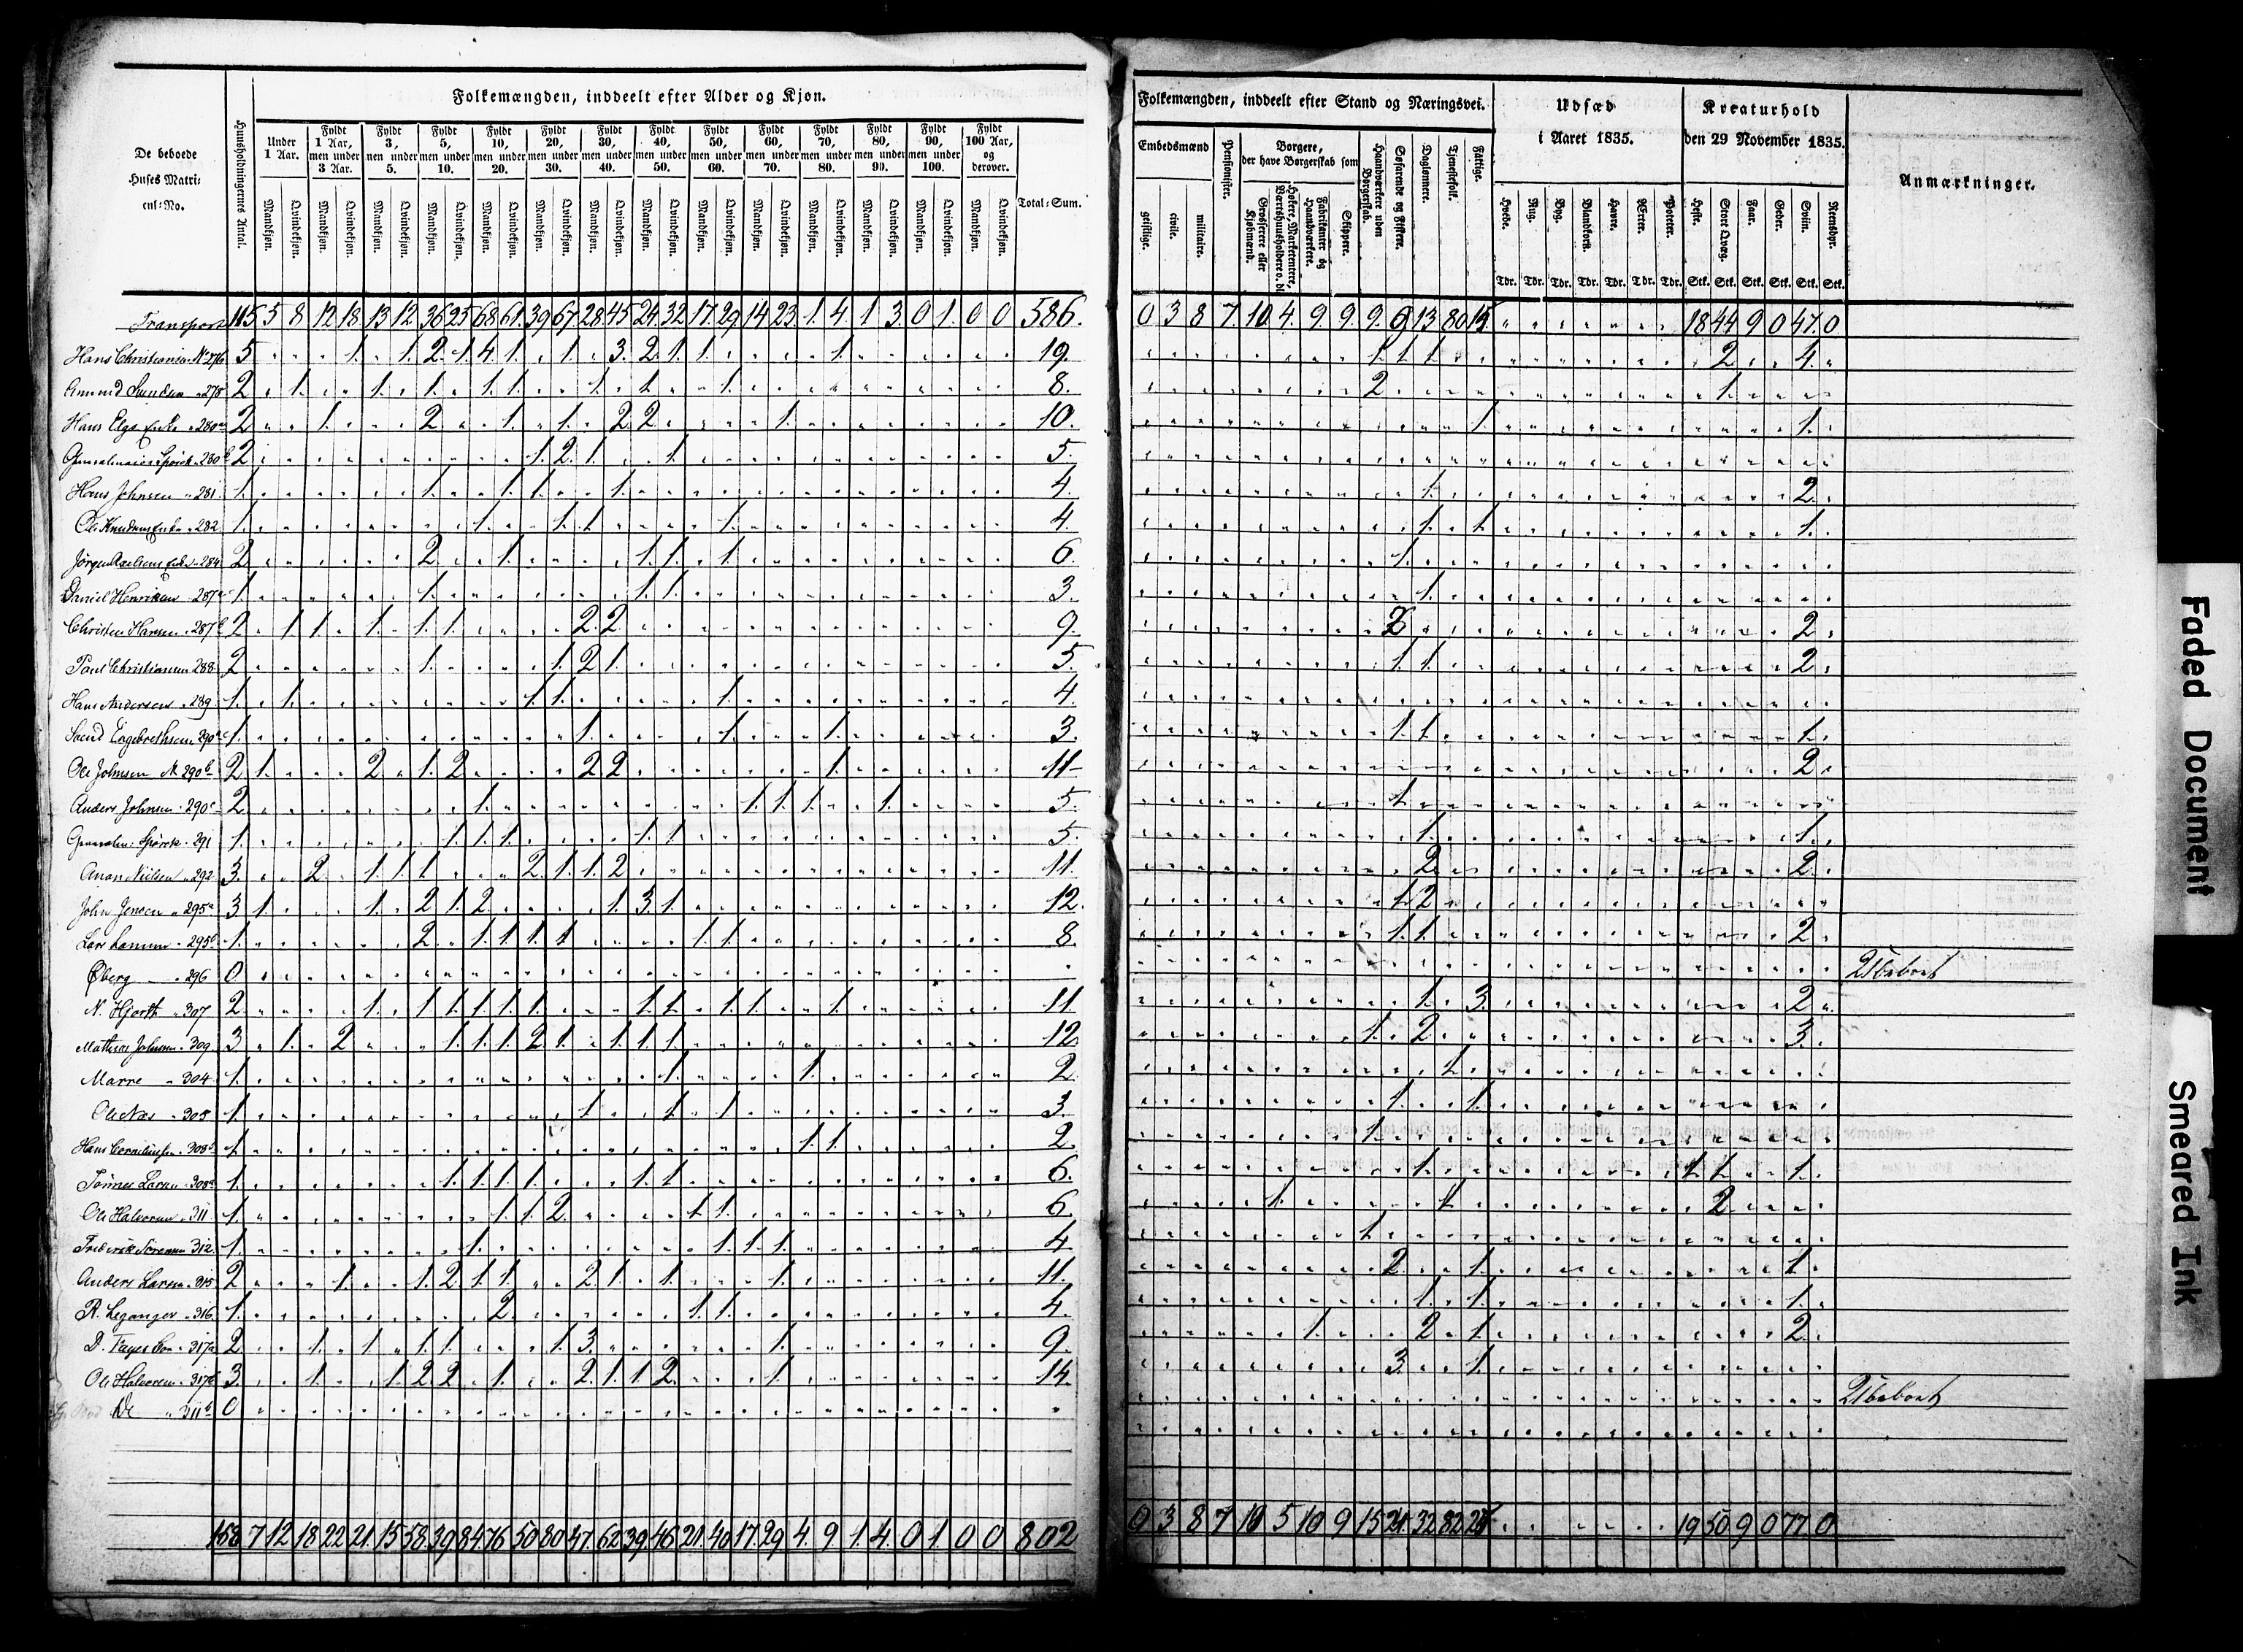 Folkemængden, inddeelt efter Alder og Kjøn.
De beboede Huses Matri: cul:No.
Huusholdningernes Antal.
Under 1 Aar.
Fyldt 1 Aar, men under 3 Aar.
Fyldt 3, men under 5.
Fyldt 5, men under 10.
Fyldt 10, men under 20.
Fyldt 20, men under 30.
Fyldt 30, men under 40.
Fyldt 40, men under 50.
Fyldt 50, men under 60.
Fyldt 60, men under 70.
Fyldt 70, men under 80.
Fyldt 80, men under 90.
Fyldt 90, men under 100.
Fyldt 100 Aar, og derover.
Mandkjøn. Qvindekjøn.
Total-Sum.
Transport 115 5 8 12 18 13 12 36 25 68 61 39 67 28 45 24 32 17 29 14 23 1 4 1 3 0 1 0 0 586.
Hans Christiansen No 276 5 1. 1. 2. 1. 4. 1. 1. 3. 2. 1. 1. 1. 19.
Amund 278 2 1. 1. 1. 1. 1. 1. 1. 1. 8.
Hans Elgs Enke 280a 2 1. 2 1. 1. 2 2 1. 10.
Generalmajor Spørck 280b 2 1. 2. 1. 1. 5.
Hans Johnsen 281 1. 1. 1. 1. 1. 4.
Ole Knudsens Enke 282 1. 1. 1. 1. 1. 4.
Jørgen Axelsens Enke 284 2 2. 1. 1. 1. 1. 6.
Daniel Henriksen 287a 1. 1. 1. 1. 3.
Christen Hansen 287b 2 1. 1. 1. 1. 1. 2. 2. 9.
Paul Christiansen 288 2 1. 1. 2. 1. 5.
Hans Andersen 289 1. 1. 1. 1. 1. 4.
Engebrethsen 290a 1. 1. 1. 1. 3.
Ole Johnsen No 290b 2 1. 2 1. 2 2 2 1. 11
Anders Johnsen 290c 2 1. 1. 1. 1. 1. 5.
Spørck 291 1. 1. 1. 1. 1. 1. 5.
Nielsen 292 3. 2 1. 1. 1. 2. 1. 1. 2. 11.
John Jensen 295a 3 1. 1. 2 1. 2 1. 3. 1. 12.
Lars 295b 1. 2. 1. 1. 1. 1. 1. 1. 8.
Øberg 296 0
N. Hjorth 307 2 1. 1. 1. 1. 1. 1. 1. 1. 1. 1. 1. 11
Mathias Johnsen 309 3 1. 2 1. 1. 1. 2. 1. 1. 1. 1. 12.
Marre 304 1. 1. 1. 2
Ole Næs 305 1. 1. 1. 1. 3.
Hans Corneliussen 308b 1. 1. 1. 2.
Tønnes Larsen 308a 1. 1. 1. 1. 1. 1. 1. 6.
Ole Halvorsen 311 1. 1. 1. 2. 1. 1. 6.
Frederik Sørensen 312 1. 1. 1. 1. 1. 4.
Anders Larsen 315 2 1. 1. 2. 1. 1. 2. 1. 1. 1. 11.
R. Leganger 316 1. 2. 1. 1. 4.
D. 317a 2 1. 1. 1. 1. 1. 3. 1. 9.
Ole Halvorsen 317b 3. 1. 1. 2 2. 1. 2. 1. 1. 2. 1. 14.
Do 311b 0
158 7 12 18 22 21 15 53 39 84 76 50 80 47 62 39 46 21 40 17 29 4 9 1 4 0 1 0 0 802
Folkemængden, inddeelt efter Stand og Næringsvei.
Embedsmænd geistlige. civile. militaire.
Pensionister.
Borgere, der have Borgerskab som
Grosserere eller Kjøbmænd.
Høkere, Marketentere, Værtshuusholdere o. dl.
Fabrikanter og Haandværkere.
Skippere.
Haandværkere uden Borgerskab.
Søfarende og Fiskere.
Daglønnere.
Tjenestefolk.
Fattige.
Udsæd i Aaret 1835.
Hvede. Rug. Byg. Blandkorn. Havre. Ærter. Poteter.
Tdr. Tdr. Tdr. Tdr. Tdr. Tdr. Tdr.
Kreaturhold den 29 November 1835.
Heste. Stort Qvæg. Faar. Geder. Sviin. Reensdyr.
Stk. Stk. Stk. Stk. Stk. Stk.
Anmærkninger.
0 3 8 7. 10 4. 9. 9. 9. 6 13 80 15 18 44 9 0 47 0
1. 1. 1. 2. 4.
2. 1.
1. 1.
1. 2.
1. 1. 1.
1.
1.
2 2.
1. 1. 2.
1. 1. 1.
2.
1.
1. 1.
2. 2.
1. 2.
1. 1. 2.
Ubeboet
1. 3. 2
1. 2. 3.
1.
1. 1.
1.
1. 1. 1. 1.
1. 1. 2.
1.
2. 1. 1.
1. 1. 1.
1. 2. 1. 2.
3. 1.
Ubeboet
0 3 8 7 10 5 10 9 15 21 32 82 25 19 50 9 0 77 0
Faded Document
Smeared Ink